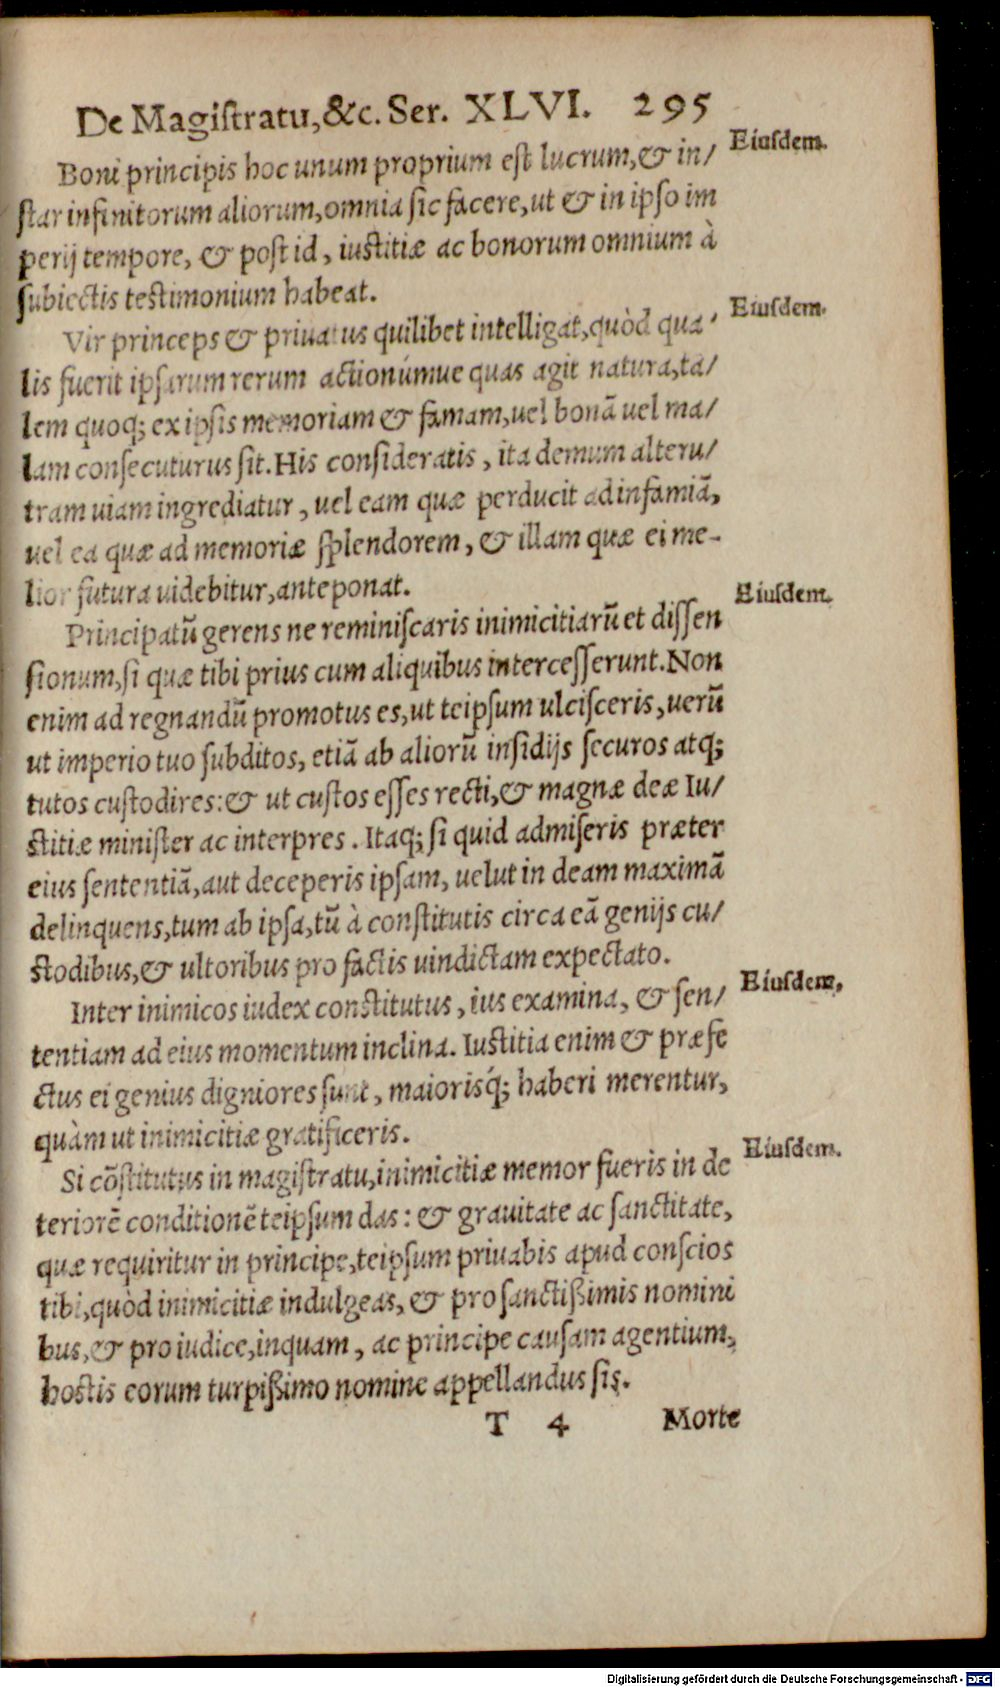 De Magiſtratu, &c. Ser. XLVI. 295
Eiuſdem.
Boni principis hoc unum proprium eſt lucrum, & in/
ſtar infinitorum aliorum, omnia ſic facere, ut & in ipſo im
perij tempore, & poſt id, iuſtitiæ ac bonorum omnium à
ſubiectis teſtimonium habeat.
Eiuſdem.
Vir princeps & priuatus quilibet intelligat, quòd qua/
lis fuerit ipſarum rerum actionúmue quas agit natura, ta/
lem quoq; ex ipſis memoriam & famam, uel bonã uel ma/
lam conſecuturus ſit. His conſideratis, ita demum alteru/
tram uiam ingrediatur, uel eam quæ perducit ad infamiã,
uel ea quæ ad memoriæ ſplendorem, & illam quæ ei me-
lior futura uidebitur, anteponat.
Eiuſdem.
Principatũ gerens ne reminiſcaris inimicitiarũ et diſſen
ſionum, ſi quæ tibi prius cum aliquibus interceſſerunt. Non
enim ad regnandũ promotus es, ut teipſum ulciſceris, uerũ
ut imperio tuo ſubditos, etiã ab aliorũ inſidijs ſecuros atq;
tutos cuſtodires: & ut cuſtos eſſes recti, & magnæ deæ Iu/
ſtitiæ miniſter ac interpres. Itaq; ſi quid admiſeris præter
eius ſententiã, aut deceperis ipſam, uelut in deam maximã
delinquens, tum ab ipſa, tũ à conſtitutis circa eã genijs cu/
ſtodibus, & ultoribus pro factis uindictam expectato.
Eiuſdem.
Inter inimicos iudex conſtitutus, ius examina, & ſen/
tentiam ad eius momentum inclina. Iuſtitia enim & præfe
ctus ei genius digniores ſunt, maiorisq́; haberi merentur,
quàm ut inimicitiæ gratificeris.
Eiuſdem.
Si cõſtitutus in magiſtratu, inimicitiæ memor fueris in de
teriorẽ conditionẽ teipſum das: & grauitate ac ſanctitate,
quæ requiritur in principe, teipſum priuabis apud conſcios
tibi, quòd inimicitiæ indulgeas, & pro ſanctißimis nomini
bus, & pro iudice, inquam, ac principe cauſam agentium,
hoſtis eorum turpißimo nomine appellandus ſis.
T 4 Morte
Digitalisierung gefördert durch die Deutsche Forschungsgemeinschaft - DFG